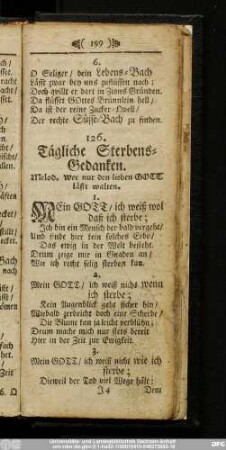 ( 199 )
6.
O Seliger / dein Lebens-Bach
Läßt zwar bey uns zufliessen nach;
Doch qvillt er dort in Zions Gründen.
Da fliesset GOttes Brünnlein hell/
Da ist der reine Zucker-Qvell/
Der rechte Süsse-Bach zu finden.
126.
Tägliche Sterbens-
Gedanken.
Melod. Wer nur den lieben GOTT
läßt walten.
1.
MEin GOTT / ich weiß wol
daß ich sterbe;
Ich bin ein Mensch der bald vergeht/
Und finde hier kein solches Erbe/
Das ewig in der Welt besteht.
Drum zeige mir in Gnaden an/
Wie ich recht selig sterben kan.
2.
Mein GOTT / ich weiß nicht wenn
ich sterbe;
Kein Augenblick geht sicher hin/
Wie bald zerbricht doch eine Scherbe/
Die Blume kan ja leicht verblühn;
Drum mache mich nur stets bereit
Hier in der Zeit zur Ewigkeit.
3.
Mein GOTT / ich weiß nicht wie ich
sterbe;
Dieweil der Tod viel Wege hält;
J 4 Dem